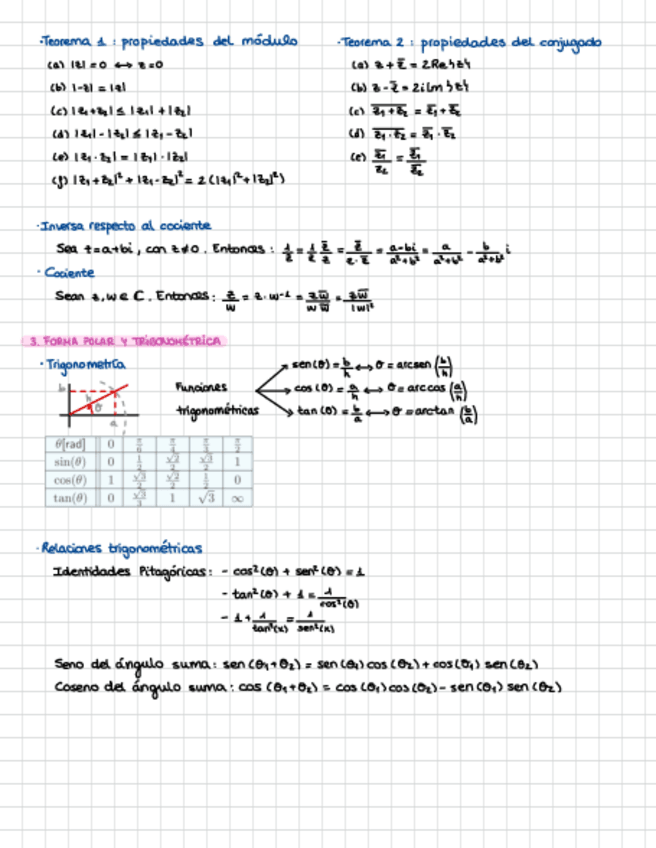 ·Teorema 1 : propiedades del módulo
(a) |z| = 0 ↔ z = 0
(b) |-z| = |z|
(c) |z₁+z₂| ≤ |z₁| + |z₂|
(d) |z₁| - |z₂| ≤ |z₁ - z₂|
(e) |z₁ · z₂| = |z₁| · |z₂|
(f) |z₁ + z₂|² + |z₁ - z₂|² = 2(|z₁|² + |z₂|²)
·Teorema 2 : propiedades del conjugado
(a) z + z̅ = 2Re{z}
(b) z - z̅ = 2i Im{z}
(c) \overline{z₁+z₂} = z̅₁ + z̅₂
(d) \overline{z₁·z₂} = z̅₁ · z̅₂
(e) \overline{z₁}/z₂ = z̅₁/z̅₂
·Inversa respecto al cociente
Sea z=a+bi, con z≠0. Entonces: 1/z = 1/z z̅/z̅ = z̅/(z·z̅) = (a-bi)/(a²+b²) = a/(a²+b²) - b/(a²+b²) i
· Cociente
Sean z,w ∈ C. Entonces: z/w = z · w⁻¹ = zw̅/ww̅ = zw̅/|w|²
3. FORMA POLAR Y TRIGONOMÉTRICA
· Trigonometría
b h θ a
Funciones
trigonométricas
sen(θ) = b/h ↔ θ = arcsen (b/h)
cos (θ) = a/h ↔ θ = arccos (a/h)
tan (θ) = b/a ↔ θ = arctan (b/a)
θ[rad] 0 π/6 π/4 π/3 π/2
sin(θ) 0 1/2 √2/2 √3/2 1
cos(θ) 1 √3/2 √2/2 1/2 0
tan(θ) 0 √3/3 1 √3 ∞
·Relaciones trigonométricas
Identidades Pitagóricas: - cos²(θ) + sen²(θ) = 1
- tan²(θ) + 1 = 1/cos²(θ)
- 1 + 1/tan²(x) = 1/sen²(x)
Seno del ángulo suma: sen (θ₁+θ₂) = sen (θ₁) cos (θ₂) + cos(θ₁) sen(θ₂)
Coseno del ángulo suma: cos (θ₁+θ₂) = cos (θ₁) cos (θ₂) - sen (θ₁) sen (θ₂)